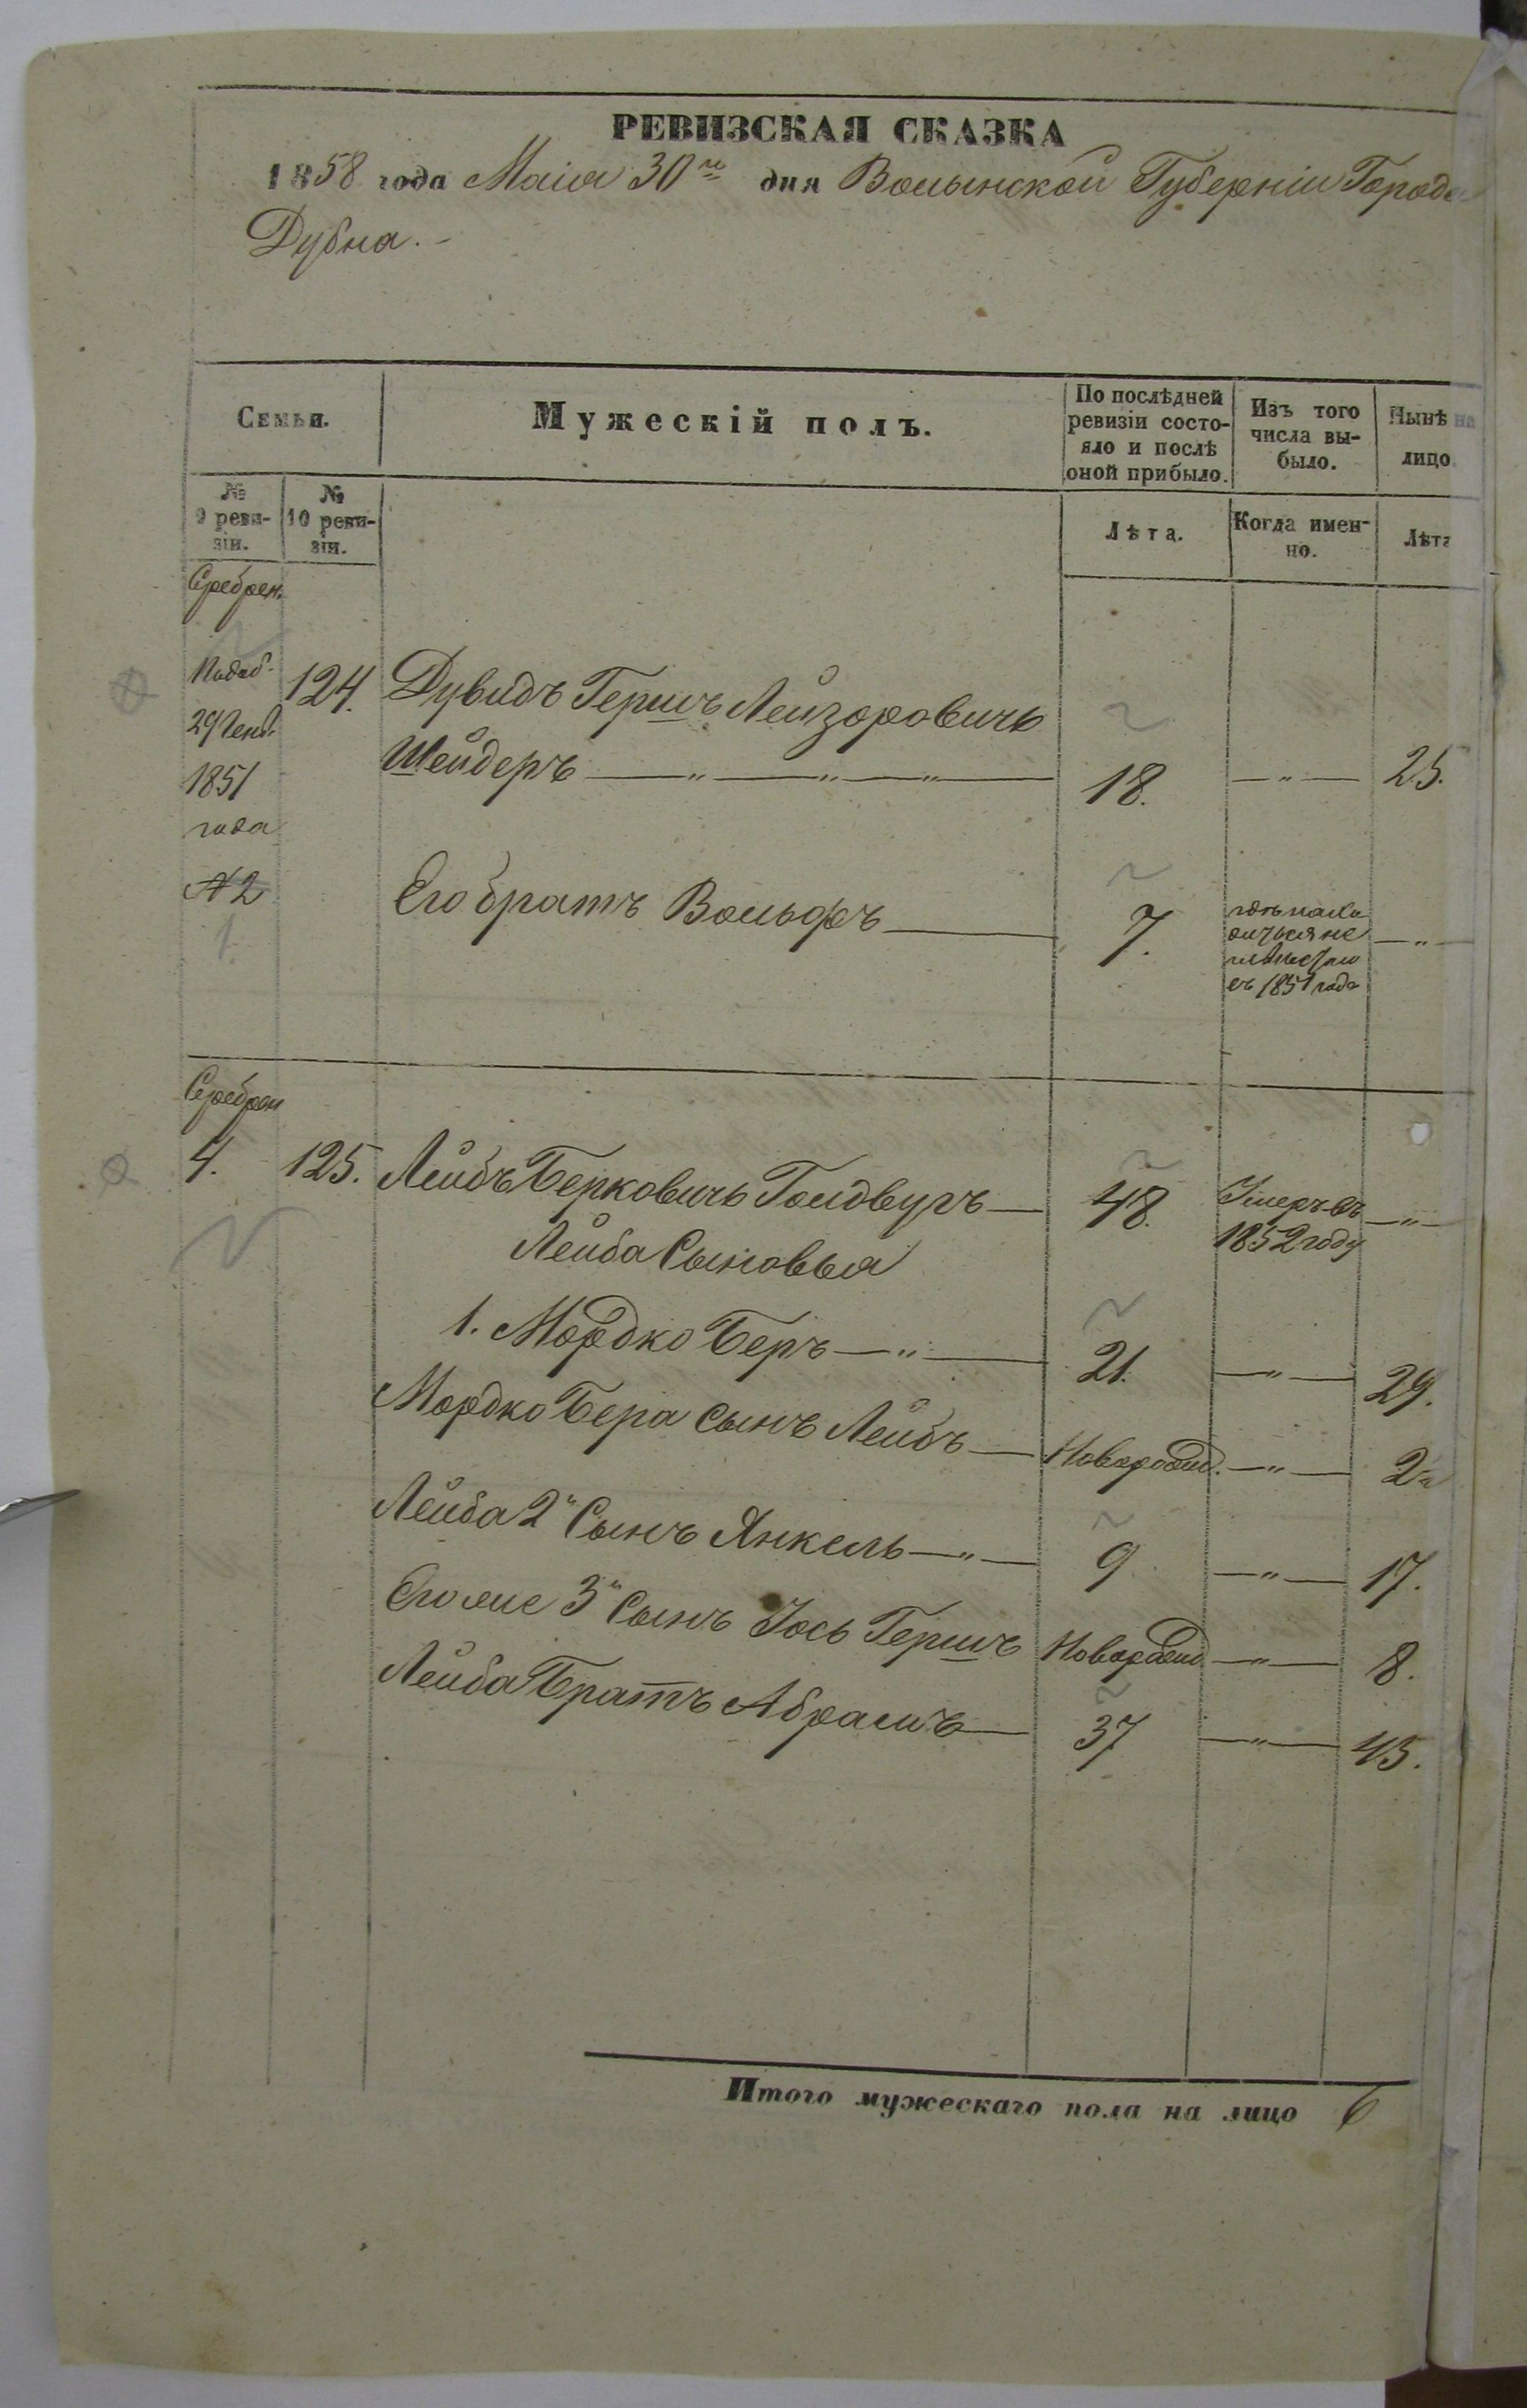 РЕВИЗСКАЯ СКАЗКА
1858 года Маія 30го дня Волынской Губерніи Города
Дубна.
Семьи.
Мужескій полъ.
По послѣдней ревизіи состо-
яло и послѣ
оной прибыло.
Изъ того
числа вы-
было.
Нынѣ на
лицо
№
9 реви-
зіи.
№
10 реви-
зіи.
Лѣта.
Когда имен-
но.
Лѣта
Серебрен.
124. Дувидъ Гершъ Лейзоровичъ
Шейдеръ 18. 25.
1851
года
№ 2
1
Его братъ Вольфъ 7.
съ 1851 года
Серебрен
4. 125. Лейбъ Берковичъ Голдвугъ 48. Умеръ въ
1852 году
Лейба Сыновья
1. Мордко Беръ 21. 29.
Мордко Бера Сынъ Лейбъ Новорожд. 2
Лейба 2й Сынъ Янкель 9 17.
Его же 3й Сынъ Іось Гершъ Новорожд 8.
Лейба Братъ Абрамъ 37 45.
Итого мужескаго пола на лицо 6